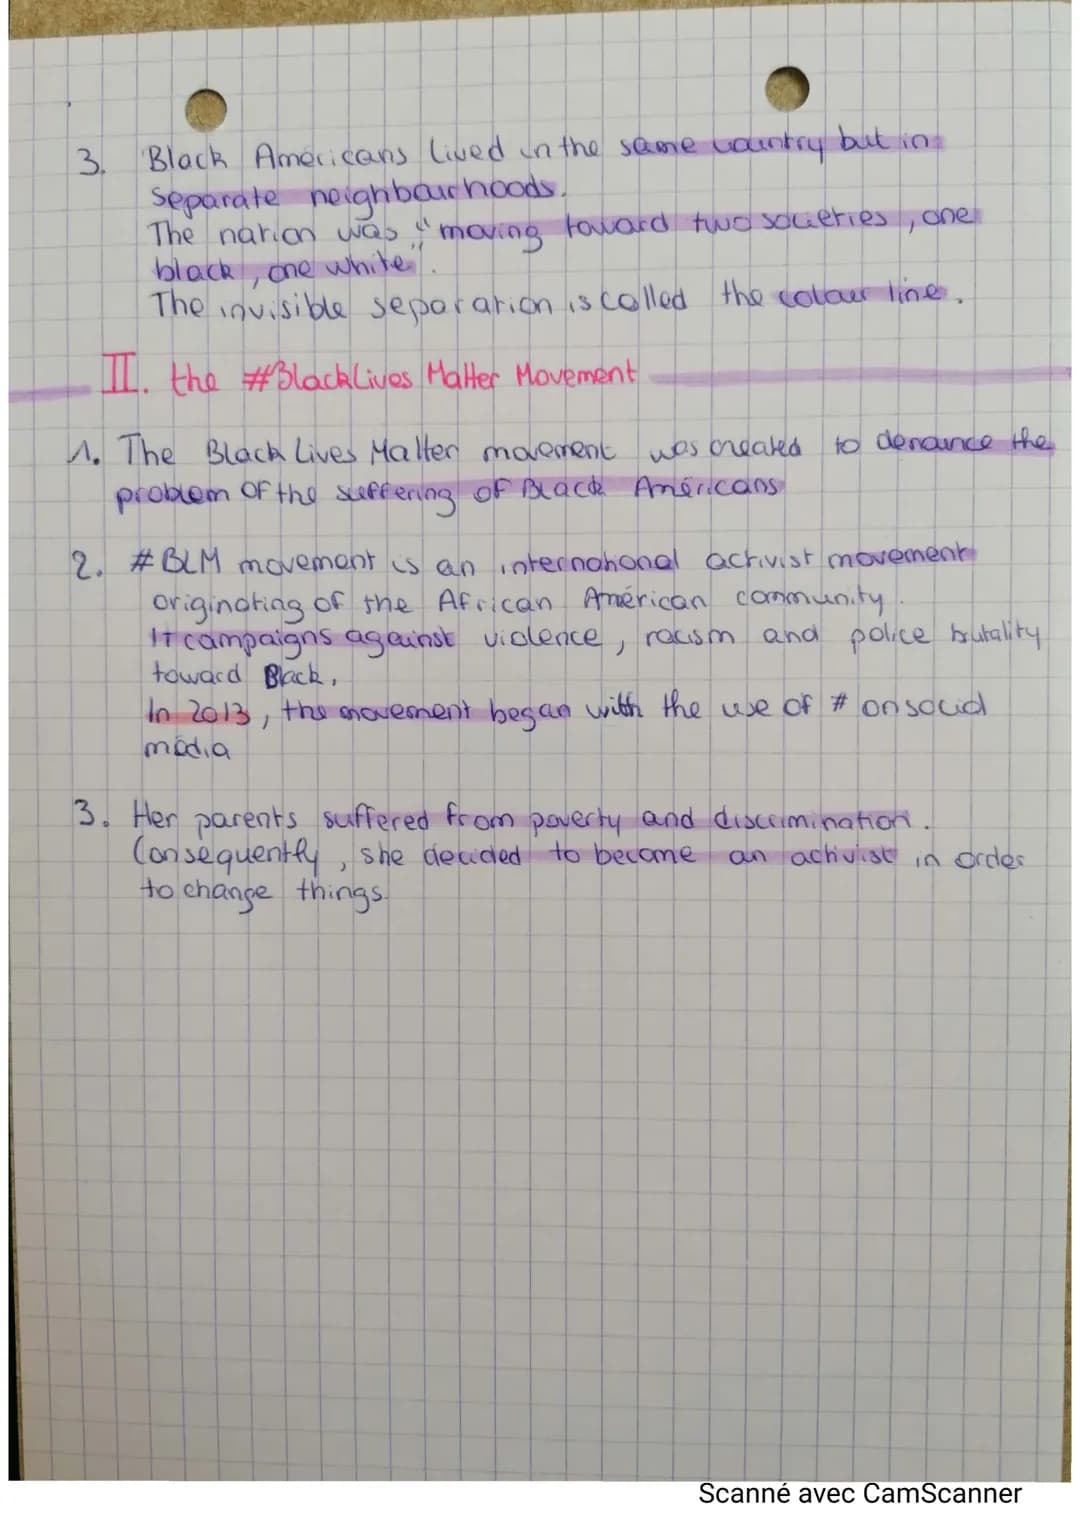 3. Black Américans lived in the same country but in
separate neighbourhoods.
The nation was "moving toward two societies, one
black, one white".
The invisible separation is called the colour line.
II. the #BlackLives Matter Movement
1. The Black Lives Matter movement was created to denounce the
problem of the suffering of Black Américans
2. #BLM movement is an international activist movement
originating of the African Américan community.
It campaigns against violence, racism and police brutality
toward Black.
In 2013, the movement began with the use of # on social
média
3. Her parents suffered from poverty and discrimination.
Consequently, she decided to become an activist in order
to change things.
Scanné avec CamScanner